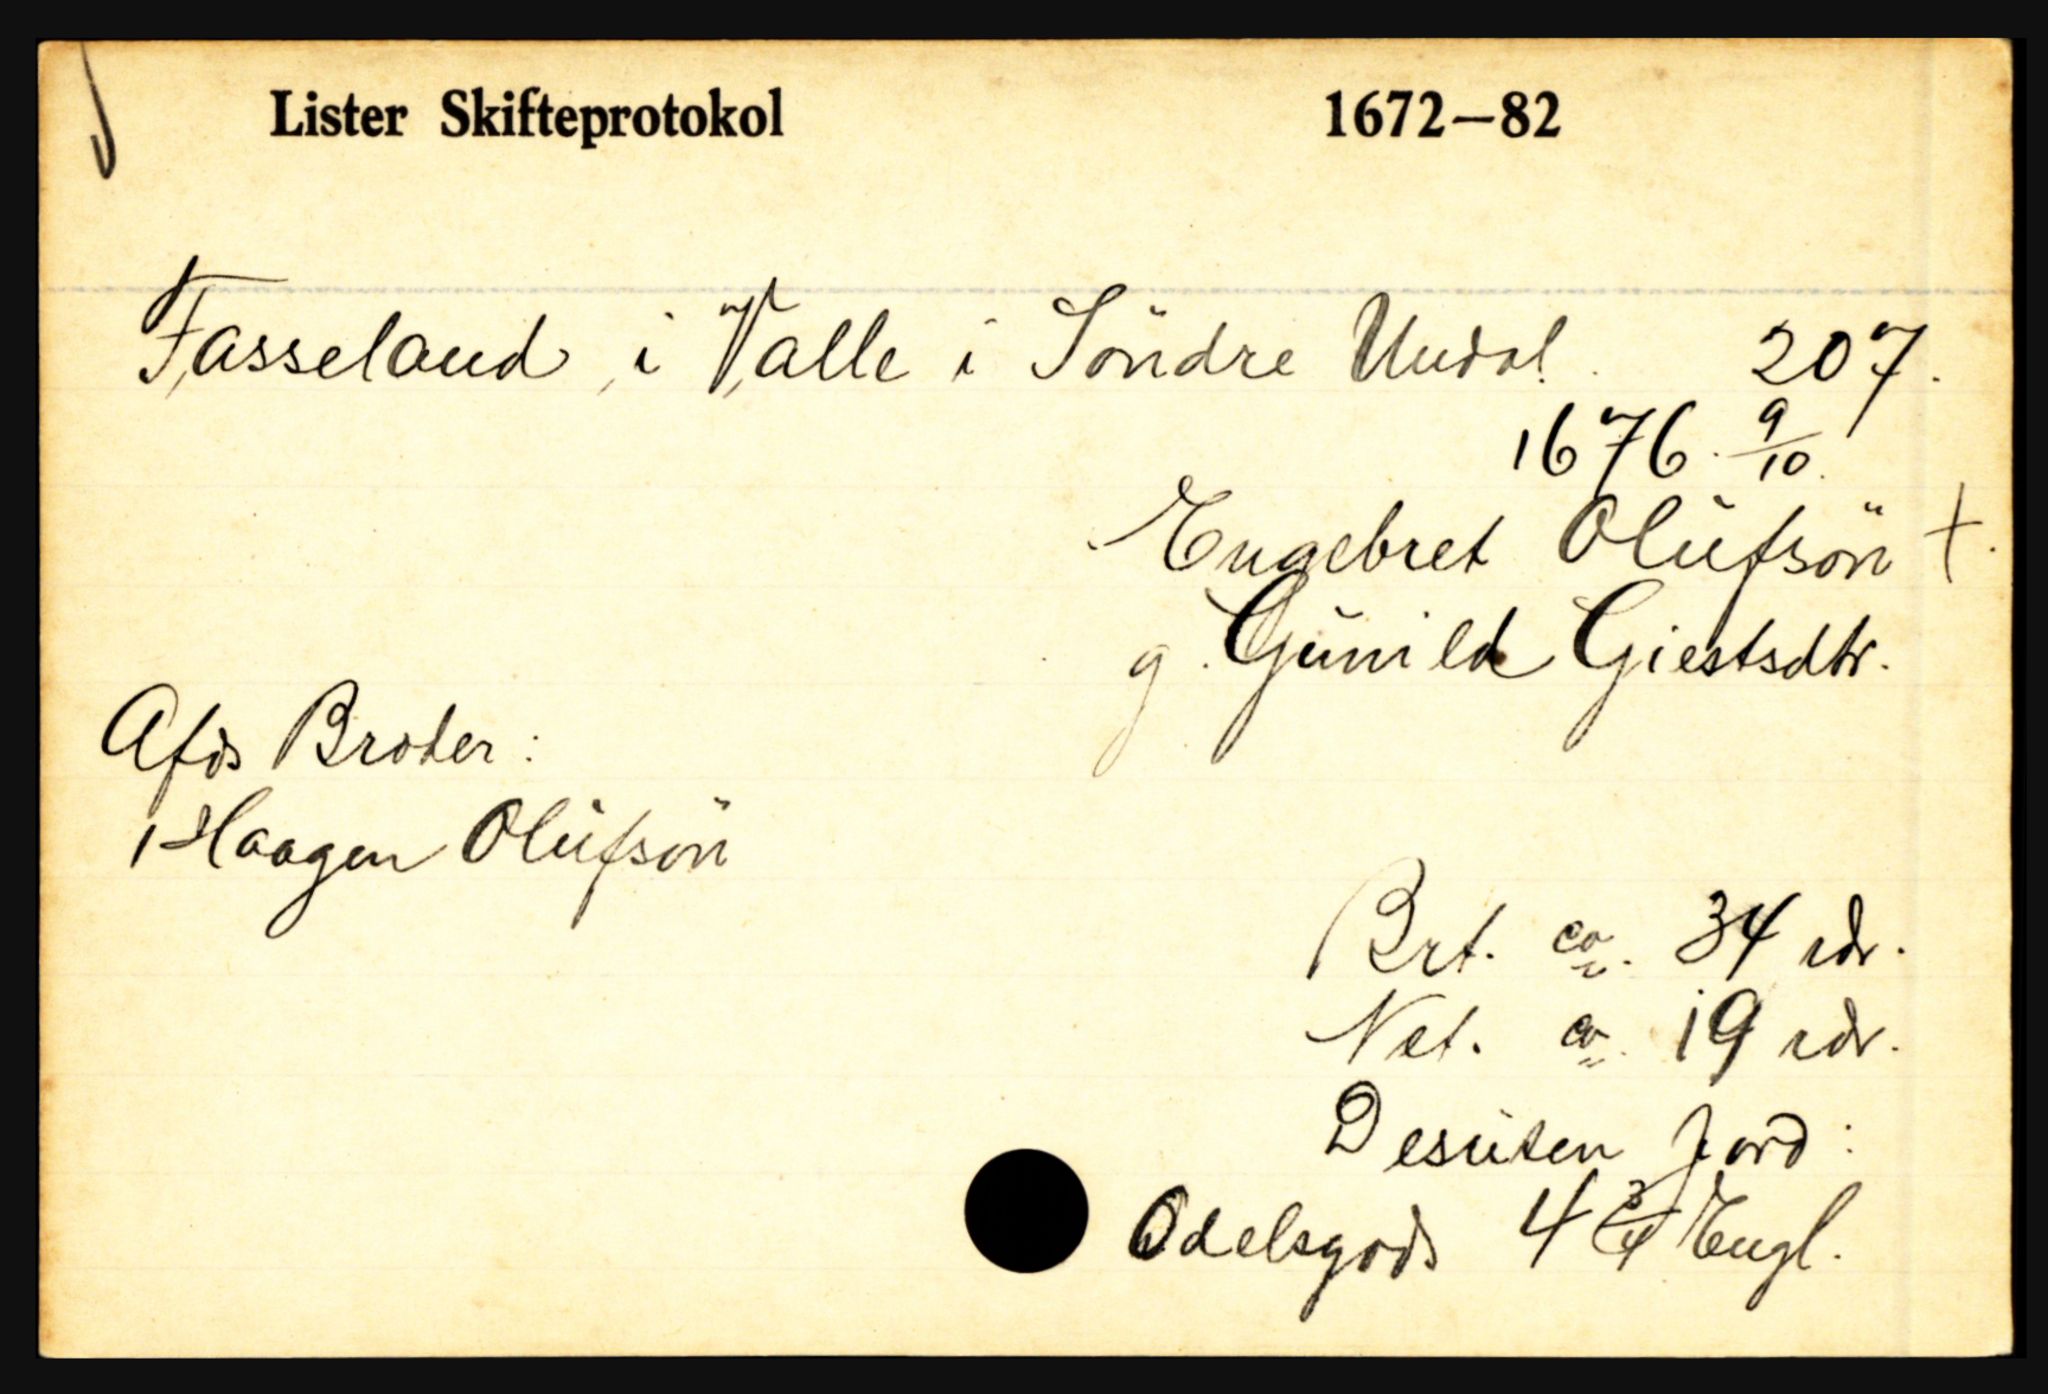 Lister Skifteprotokol 1672—82
Fasseland i Valle i Söndre Undal. 207.
1676. 9/10.
Engebret Olufsön +.
g. Gunild Giestsdtr.
Afds Broder:
1 Haagen Olufsön
Brt. ca. 34 rdr.
Net. ca. 19 rdr.
Desuten Jord:
Odelsgods 4 3/4 Engl.